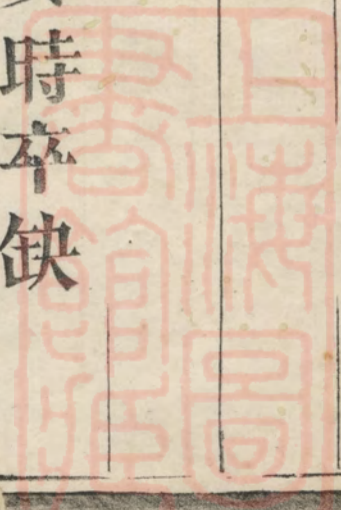 時卒缺
上海圖
書館藏